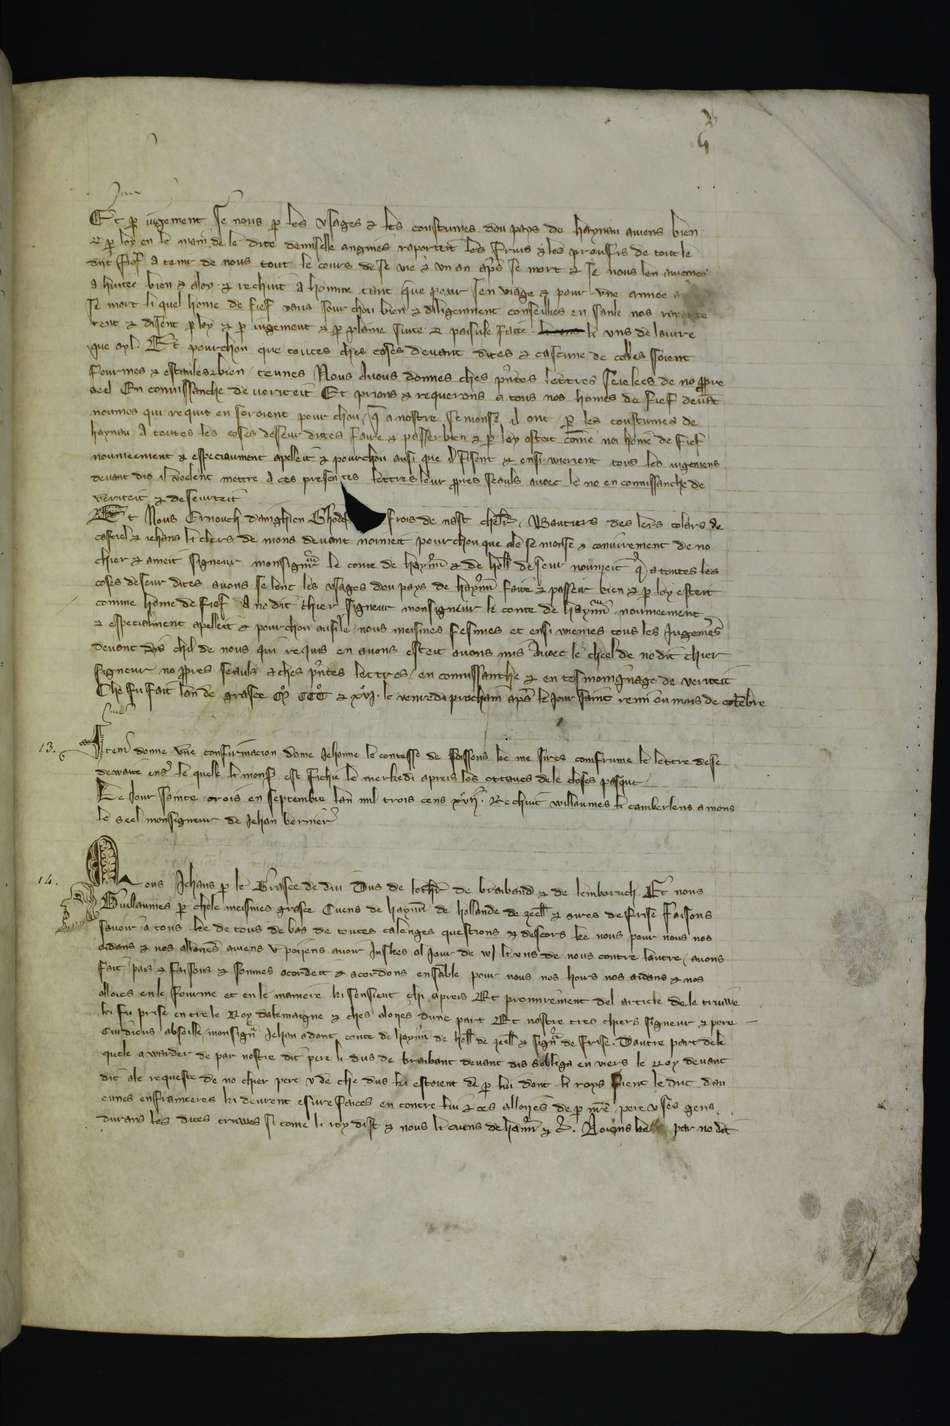 Et p iugement se nous p les usages & les coustumes dou pays de haynau auons bien
& p loy en le main de le dite demiselle angnies raporteit les fruis & les proufis de tout le
dit fief a tenir de nous tout le cours de se vie & un an apres se mort & se nous len auiones
a hiretei bien & a loy & rechiut a homme tant que pour sen viage & pour vne annee
se mort li quel home de fief sour chou bien & diligenment conseilliet en sanle nos
rent & disent p loy & p iugement & p plaine siute & paisiule faite li vns de lautre
que oyl. Et pourchou que toutes ches coses deuant dites & cascune de celles soient
fourmes & estaules & bien tenues Nous auons donnes ches pntes lettres seielees de no ppre
seel En connissanche de veriteit Et prions & requerons a tous nos homes de fief deuant
nourmes qui requis en seroient pour chou q a nostre semonse il ont p les coustumes de
haynau a toutes les coses deseur dites faire & passer bien & p loy estoit come no home de fief
nourmeement & especiaument apelleit & pourchou ausi que il fisent & ensi wierent tous les iugemens
deuant dis il voelent mettre a ces presentes lettres leur ppres seauls auoec le no en connissanche de
veriteit & de seurteit
Et Nous Ernouls dainghien frois de nast chlr Wautiers des lers colars de
castiel & iehans li clers de mons deuant nomeit pourchou que ale semonse & conuirement de no
chier & ameit signeur monsignr le conte de haynn & de holl deseur noumeit q a toutes les
coses deseur dites auons selonc les usages dou pays de haynn faire & passeir bien & p loy esteit
comme home de fief a no dit chier signeur monsigneur le conte de haynn nourmeement
& especiaument apelleit & pourchou ausi ke nous meismes fesimes et ensi wiemes tous les Jugemens
deuant dis chil de nous qui requis en auons esteit auons mis auoec le seel de no dit chier
signeur no ppres seauls a ches pntes lettres en connissanche & en tesmoignage de veriteit
Che fu fait lan de grasce M CCC & xvj. le venredi prochain apres le jour saint remi ou mois de octembre
13. Item donne vne confirmacion dame Jehanne le contesse de Soissons ke me sires confrume le lettre de se
dewaire ens le quele li mons est fichie le merkedi apries les octaues dele closes pasque
Le jour sainte crois en septembre lan mil trois cens xvij. Rechiut willaumes li camberlens a mons
le seel monsigneur de Jehan bernier
14. Nous Jehans p le Grasce de diu Dus de lothr de braiband & de lemborch Et nous
Guillaumes p chele meismes grasce Cuens de haynn de hollande de zell & sires de frise faisons
sauoir a tous ke de tous debas de toutes calenges questions & descors ke nous pour nous nos
aidans & nos alloiies auiens v poiiens auoir juskes al jour de wj li vns de nous contre lautre auons
fait pais & faisons & sommes acordeit & acordons ensanle pour nous nos hoirs nos aidans & nos
alloies en le fourme et en le maniere ki sensieut chi apries Et premirement del article de le triuwe
ki fu prise entre le Roy dalemaigne & ches aloiies dune part Et nostre tres chiers signeur & pere
Cui dieus absoille monsignr Jehan adont conte de haynn de holl de zell & signr de frise Dautre part dele
quele awarder de par nostre dit pere li dus de braibant deuant dis sobliga en viers le Roy deuant
dit ale requeste de no chier pere v de che dus ki estoient la p lui dont li roys tient le duc dau
cunes enfrainceres ki deurent estre faites en contre lui & ces alloiies de p nre pere v ses gens
durans les dites triuwes si come li roy dist & nous li cuens de haynn & c. Noiens par no dit